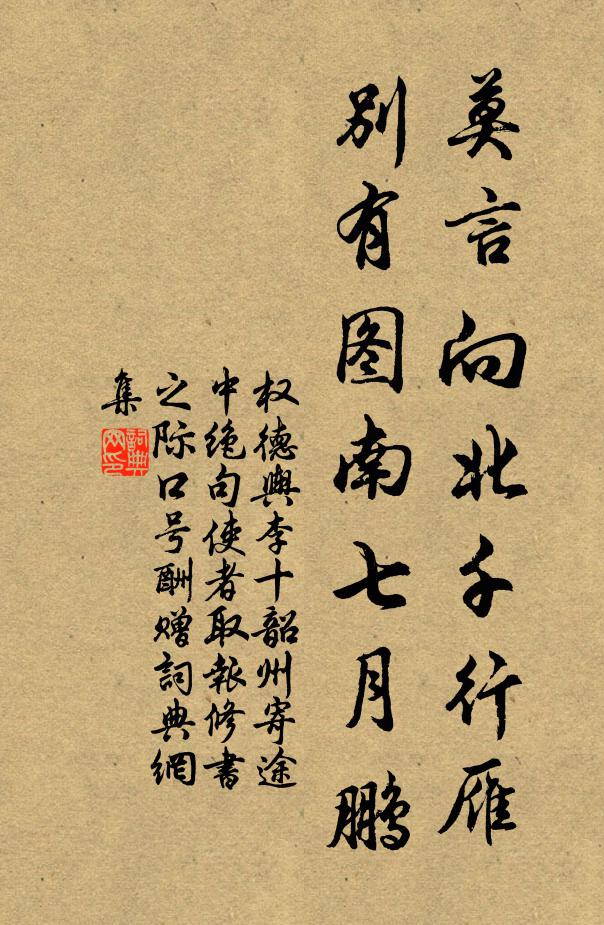 莫言向北千行雁
别有图南七月鹏
权德舆李十韶州寄途
中绝句使者取报修书
之际口号酬赠词典網
集
詞典網印